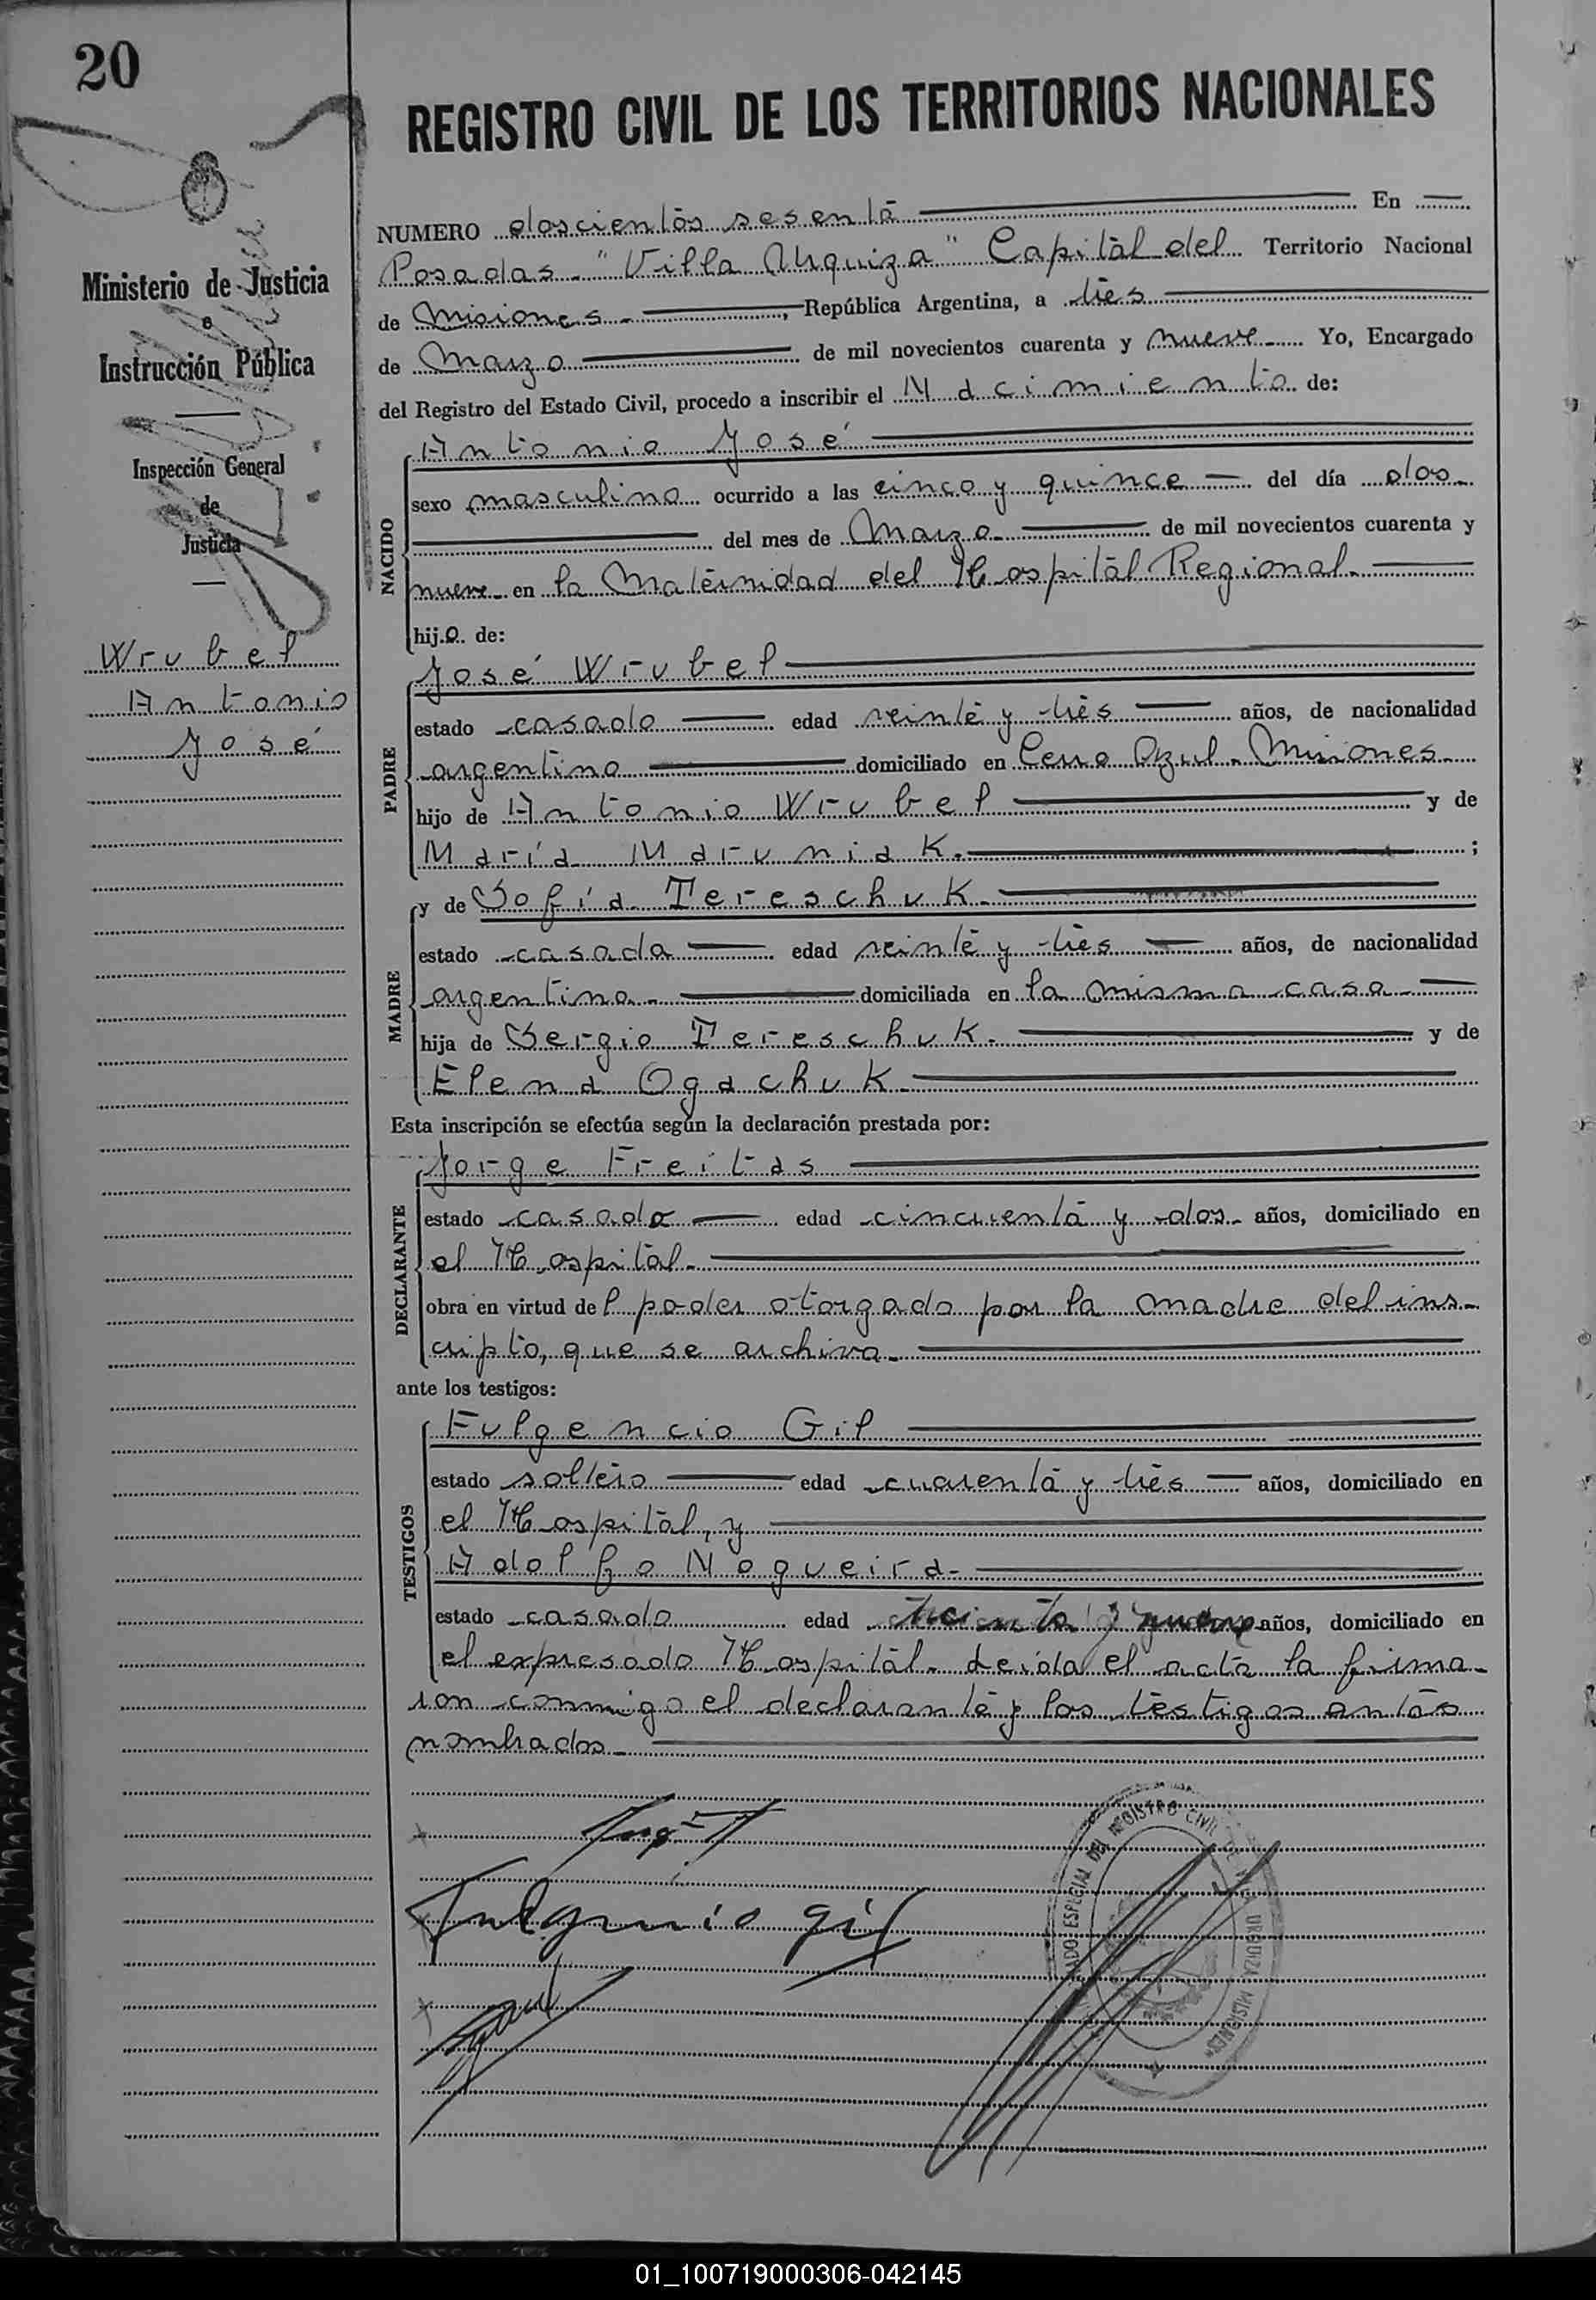 20
REGISTRO CIVIL DE LOS TERRITORIOS NACIONALES
Ministerio de Justicia
e
Instrucción Pública
Inspección General
de
Justicia
Wrubel
Antonio
José
NUMERO doscientos sesenta En
Posadas - "Villa Urquiza" Capital del Territorio Nacional
de Misiones - , República Argentina, a tres
de Marzo de mil novecientos cuarenta y nueve - Yo, Encargado
del Registro del Estado Civil, procedo a inscribir el Nacimiento de:
NACIDO
Antonio José
sexo masculino ocurrido a las cinco y quince del día dos
del mes de Marzo de mil novecientos cuarenta y
nueve en la Maternidad del Hospital Regional.
hijo de:
PADRE
José Wrubel
estado casado edad veinte y tres años, de nacionalidad
argentino domiciliado en Cerro Azul - Misiones
hijo de Antonio Wrubel y de
María Maruniak. ;
MADRE
y de Sofía Tereschuk.
estado casada edad veinte y tres años, de nacionalidad
argentina domiciliada en la misma casa
hija de Sergio Tereschuk. y de
Elena Ogachuk
Esta inscripción se efectúa según la declaración prestada por:
DECLARANTE
Jorge Freitas
estado casado edad cincuenta y dos años, domiciliado en
el Hospital.
obra en virtud del poder otorgado por la madre del ins-
cripto, que se archiva
ante los testigos:
TESTIGOS
Fulgencio Gil
estado soltero edad cuarenta y tres años, domiciliado en
el Hospital, y
Adolfo Nogueira
estado casado edad treinta y nueve años, domiciliado en
el expresado Hospital. Leída el acta la firma-
ron conmigo el declarante y los testigos antes
nombrados
Fulgencio gil
ESPECIAL DEL REGISTRO CIVIL
URQUIZA MISIONES
01_100719000306-042145